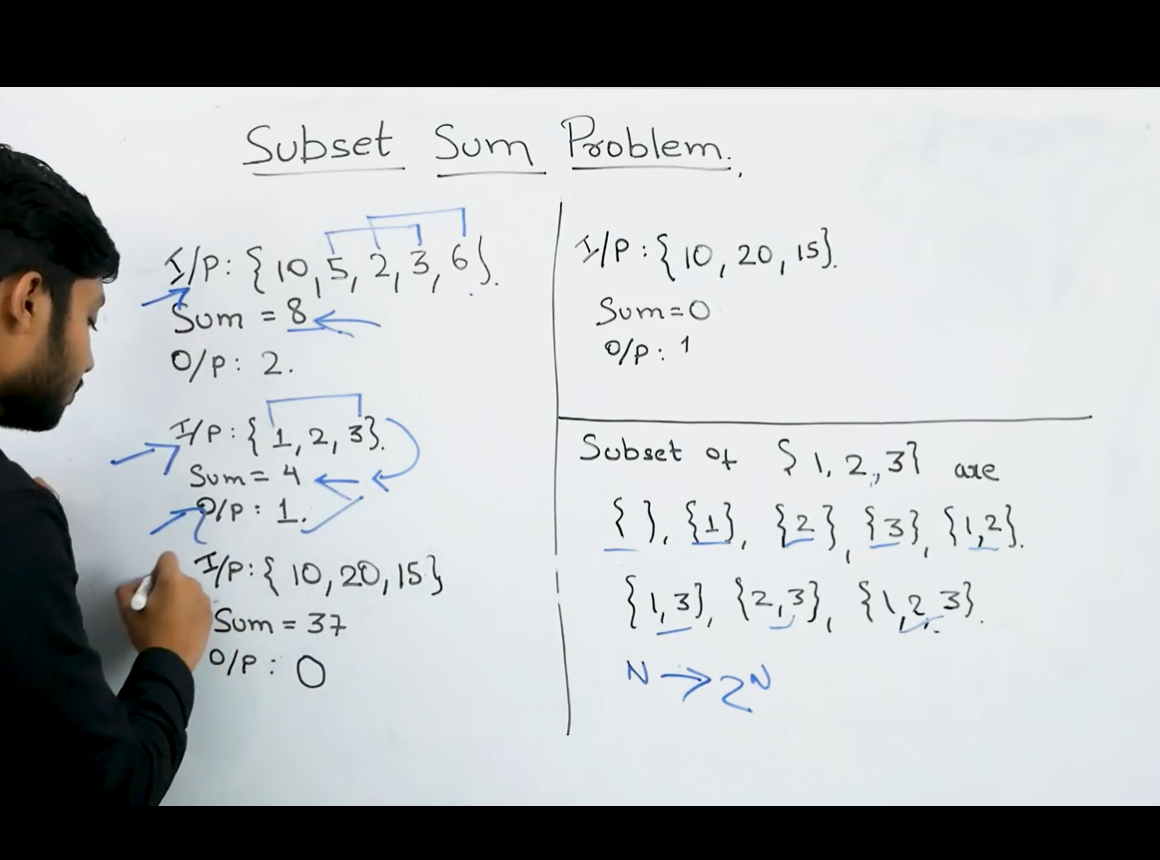 Subset Sum Problem.
I/P: {10, 5, 2, 3, 6}.
Sum = 8
O/P: 2.
I/P: {1, 2, 3}.
Sum = 4
O/P: 1.
I/P: {10, 20, 15}
Sum = 37
O/P: 0
I/P: {10, 20, 15}.
Sum=0
O/P: 1
Subset of {1, 2, 3} are
{ }, {1}, {2}, {3}, {1,2}.
{1,3}, {2,3}, {1,2,3}.
N → 2^N